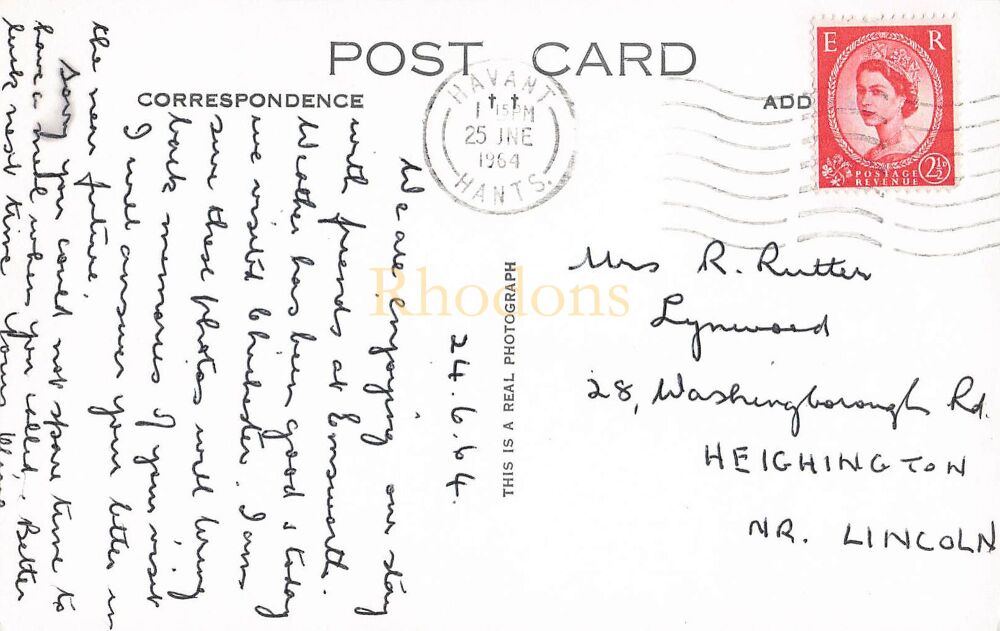 POST CARD
CORRESPONDENCE
ADD
HAVANT
1 15 PM
25 JNE
1964
HANTS.
E R
POSTAGE
REVENUE
2½D
24.6.64.
We are enjoying our stay
with friends at Emsworth.
Weather has been good & today
we visited Chichester. I am
sure these photos will bring
back memories of your visit
I will answer your letter in
the near future.
Sorry you could not spare time to
have a meal when you called. Better
luck next time Yours
THIS IS A REAL PHOTOGRAPH
Mrs R. Rutter
Lynwood
28, Washingborough Rd.
HEIGHINGTON
NR. LINCOLN
Rhodons